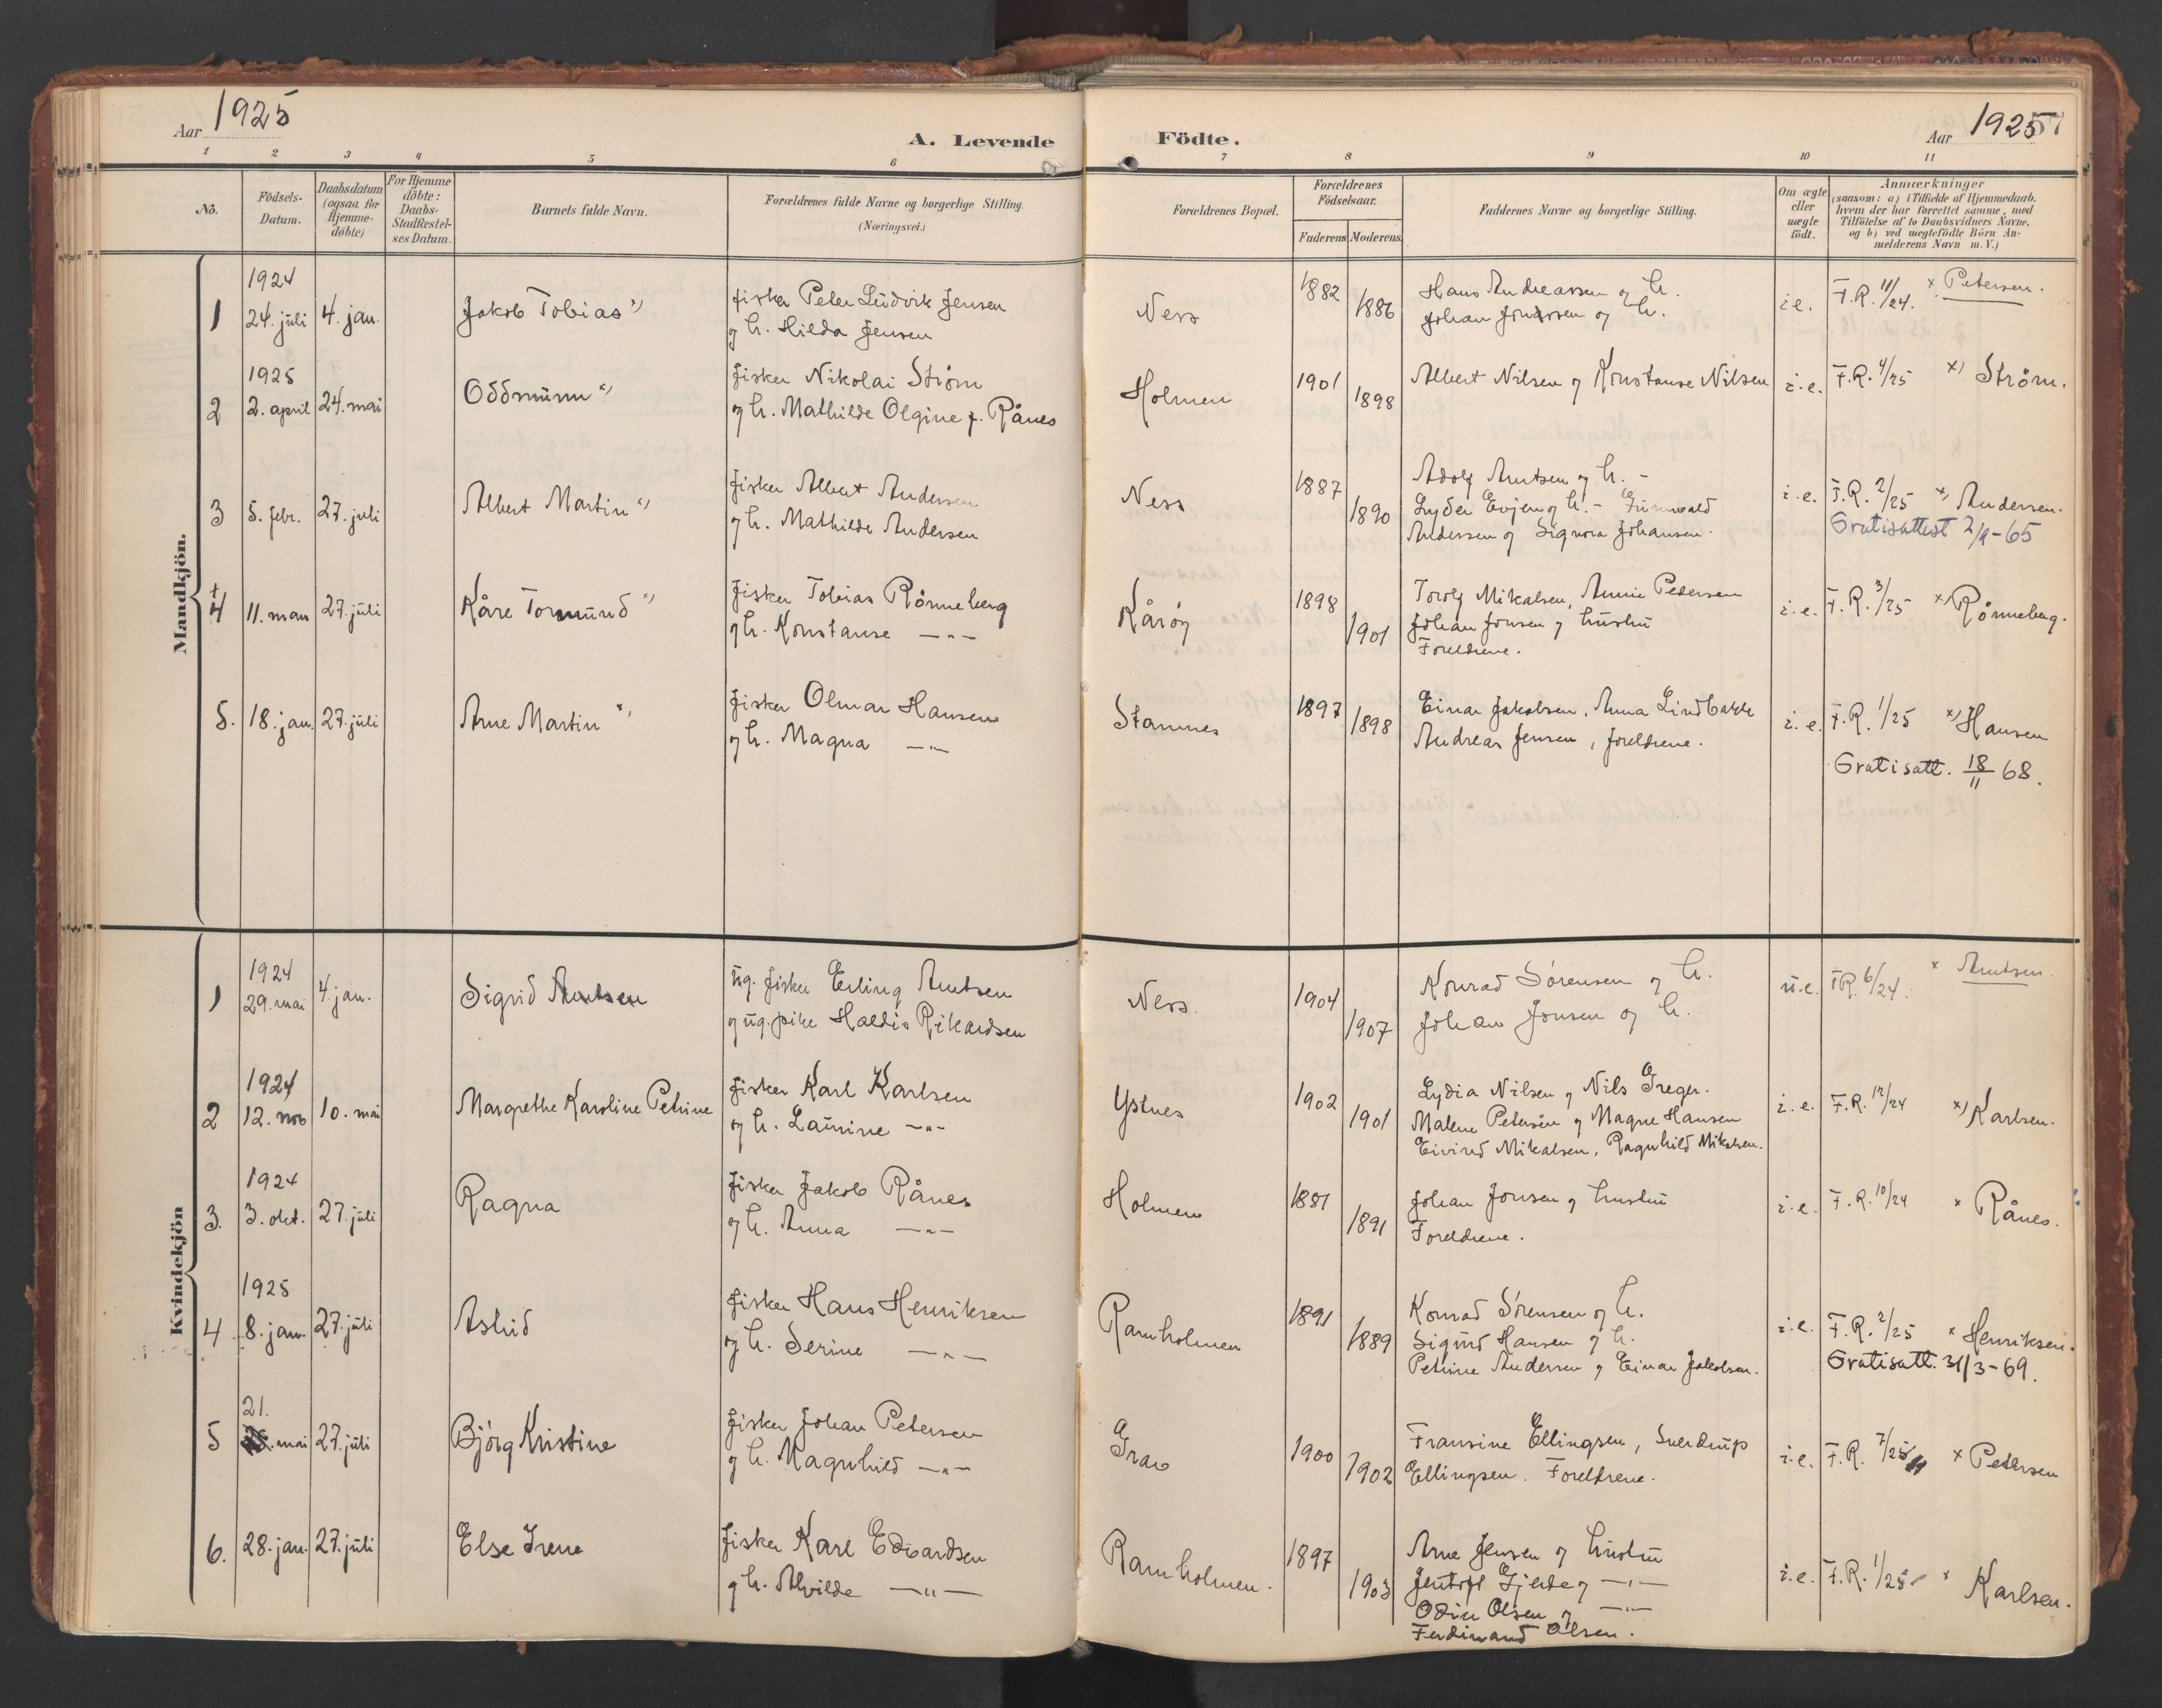 Aar 1925
A. Levende
Födte.
Aar 1925
1 2 3 4 5 6 7 8 9 10 11
No.
Födsels-
Datum.
Daabsdatum
(ogsaa for
Hjemme-
döbte)
For Hjemme
döbte:
Daabs-
Stadfæstel-
ses Datum.
Barnets fulde Navn.
Forældrenes fulde Navne og borgerlige Stilling.
(Næringsvei.)
Forældrenes Bopæl.
Forældrenes
Födselsaar.
Faderens Moderens
Faddernes Navne og borgerlige Stilling.
Om ægte
eller
uægte
födt.
Anmærkninger
(saasom: a) i Tilfælde af Hjemmedaab.
hvem der har forrettet samme, med
Tilföielse af to Daabsvidners Navne.
og b) ved uægtefödte Börn An-
melderens Navn m. V.)
Mandkjön.
1924
1 24. juli 4. jan. Jakob Tobias x) fisker Peler Ludvik Jensen
og h. Hilda Jensen
Ness 1882 1886
Hans Andreassen og h.
Johan Jonassen og h.
i.e. F.R. 11/24. x Petersen.
1925
2 2. april 24. mai Oddmunn x) fisker Nikolai Strøm
og h. Mathilde Olgine f. Rånes
Holmen 1901 1898
Albert Nilsen og Konstanse Nilsen
i.e. F.R. 4/25 x) Strøm.
3 5. febr. 27. juli Albert Martin x) fisker Albert Andersen
og h. Mathilde Andersen
Ness 1887 1890
Adolf Arntsen og h. -
Lyder Evjen og h. - Grunvald
Anderssen og Signora Johansen.
i.e. F.R. 2/25 x) Andersen.
Gratisattest 2/9-65
+
4 11. mars 27. juli Kåre Tormund x) fisker Tobias Rønneberg
og h. Konstanse -"-
Kårøy 1898 1901
Torolf Mikalsen, Annie Petersen
Johan Jonsen og hustru
Foreldrene.
i.e. F.R. 3/25 x) Rønneberg.
5. 18. jan. 27. juli Arne Martin x) fisker Olmar Hansen
og h. Magna -"-
Stamnes 1897 1898
Einar Jakobsen, Anna Lindbakk
Andreas Jensen, foreldrene.
i.e. F.R. 1/25 x) Hansen
Gratisatt. 18/11 68.
Kvindekjön
1924
1 29. mai 4. jan. Sigrid Arntsen ug. fisker Erling Arntsen
og ug. pike Haldis Rikardsen
Ness. 1904 1907
Konrad Sørensen og h.
Johan Jonsen og h.
u.e. F.R. 6/24. x Arntsen.
1924
2 12. nov 10. mai Margrethe Karoline Petrine fisker Karl Karlsen
og h. Laurine -"-
Ystnes 1902 1901
Lydia Nilsen og Nils Greger.
Malene Petersen og Magne Hansen
Eivind Mikalsen, Ragnhild Mikalsen.
i.e. F.R. 12/24 x) Karlsen.
1924
3. 3. okt. 27. juli Ragna fisker Jakob Rånes
og h. Anna -"-
Holmen 1881 1891
Johan Jonsen og hustru
Foreldrene.
i.e. F.R. 10/24 x Rånes.
1925
4 8. jan. 27. juli Astrid fisker Hans Henriksen
og h. Serine -"-
Ramholmen 1891 1889
Konrad Sørensen og h.
Sigurd Hansen og h.
Petrine Andersen og Einar Jakobsen.
i.e. F.R. 2/25 x Henriksen.
Gratisatt. 31/3-69.
21.
5 mai 27. juli Bjørg Kristine fisker Johan Petersen
og h. Magnhild -"-
Grav 1900 1902
Fransine Ellingsen, Sverdrup
Ellingsen. Foreldrene.
i.e. F.R. 7/25 x Petersen
6. 28. jan. 27. juli Else Irene fisker Karl Edvardsen
og h. Alvilde -"-
Ramholmen. 1897 1903
Arne Jensen og hustru
Gjelde og -"-
Odin Olsen og -"-
Ferdinand Olsen.
i.e. F.R. 1/25 x Karlsen.